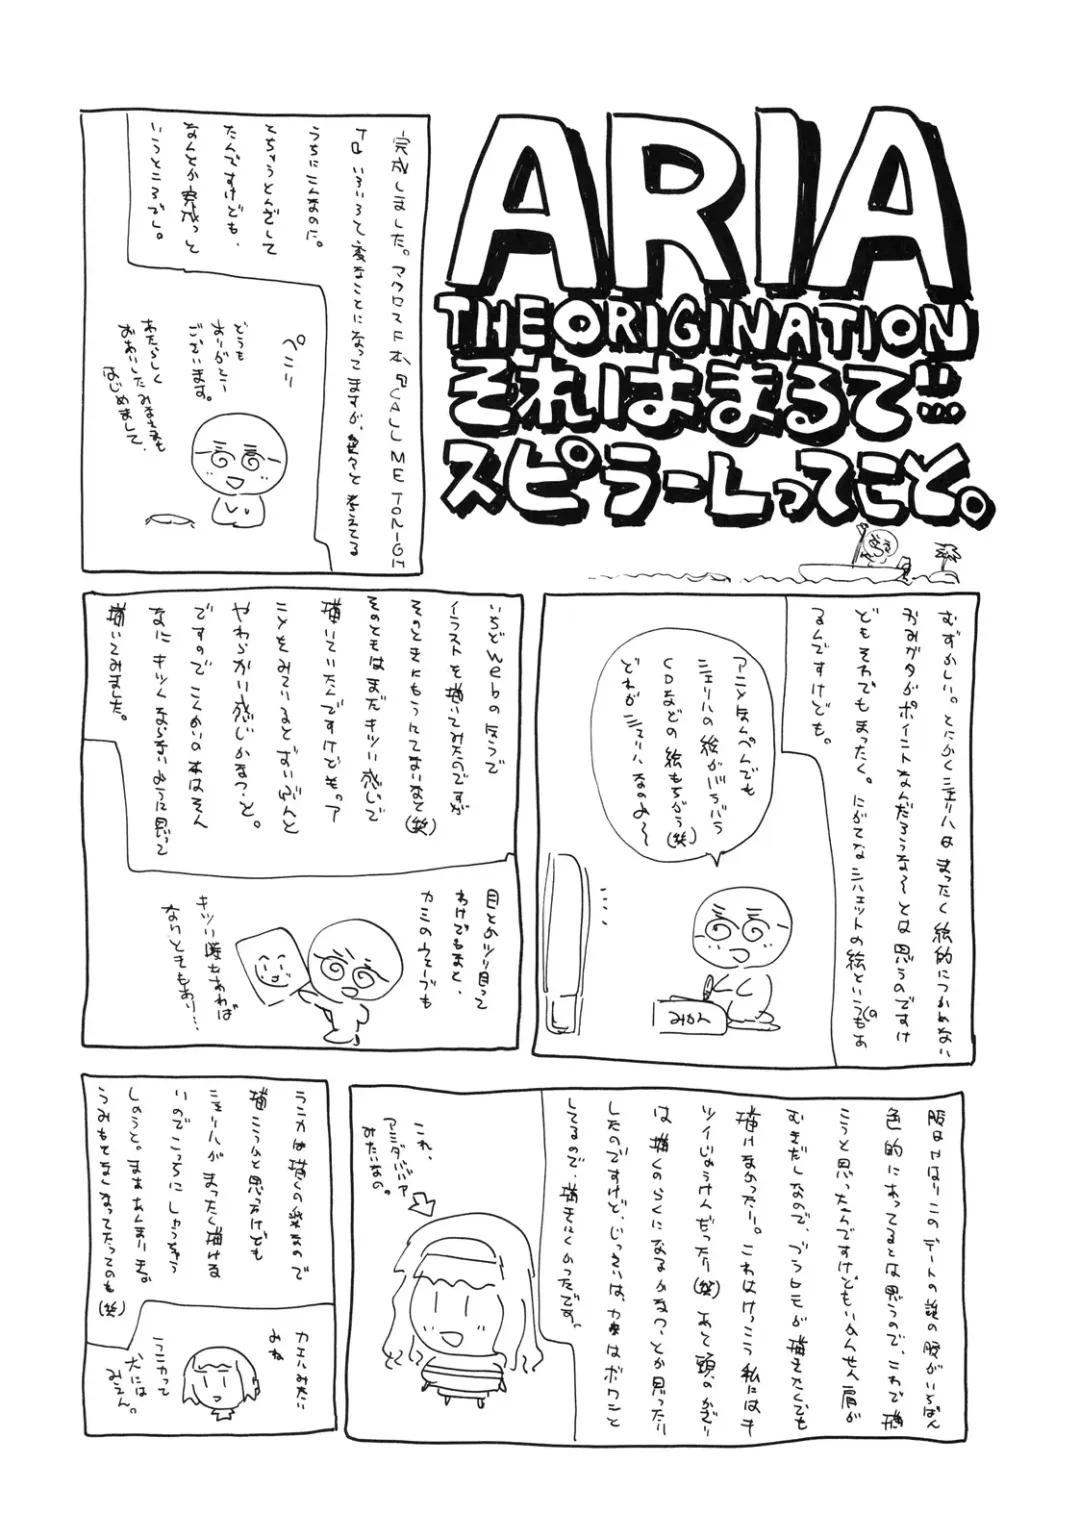 ARIA
THE ORIGINATION
それはまるで…
スピラーLってこと。
完成しました。マクロスF本『CALL ME TONIGH
T』いろいろと変なことになってますが、色々と考えてる
うちにこんなのに。
とちゅうとんざして
たんですけども、
なんとか完成っと
いうところでし。
ぺこり
どうも
ありがとう
ございます。
わたらしく
おあいしたみなさまも
はじめまして、
むずかしい。とにかくシェリルはまったく絵的につかめない
おみがタがポイントなんだろうな〜とは思うのですけ
どもそれでもまったく。にがてなシルエットの絵というのもあ
るんですけども。
アニメほんぺんでも
シェリルの絵がバラバラ
CDなどの絵もちがう(笑)
どれがシェリルなのよ〜
みかん
いちどwebの方うで
イラストを描いてみたのですが
そのときにもうにてないなと(笑)
そのときはまだキツい感じで
描いていたんですけどもっア
ことをみているとずいぶんと
やわらかい感じかなっ、と。
ですのでこんかいの本はそん
なにキツくならないように思って
描いてみました。
目とかツリ目って
わけでもなく、
カミのウェーブも
キツい時もあれば
なんともあり…
服はやはりこのデートの時の服がいちばん
色的にあってるとは思うので、これで描
こうと思ったんですけどもいかんせん肩が
むきだしなので、ブラヒモが描きたくても
描けなかったり。これはけっこう私にはキ
ツイじょうけんだったり(笑)あと頭のかざり
は描くのらくになるかなっ、とか思ったり
したのですけど、じっさいは、カオはボクこと
してるので、描きにくかったです。
これ、
アミダババア
みたいなの。
ランカは描くの楽なので
描こうかと思ったけども
シェリルがまったく描ける
いのでこっちにしちゃう
しようと。まああんまりネ
うみもなくなってたってのも(笑)
カエルみたい
よね
ランカって
犬には
みえん。